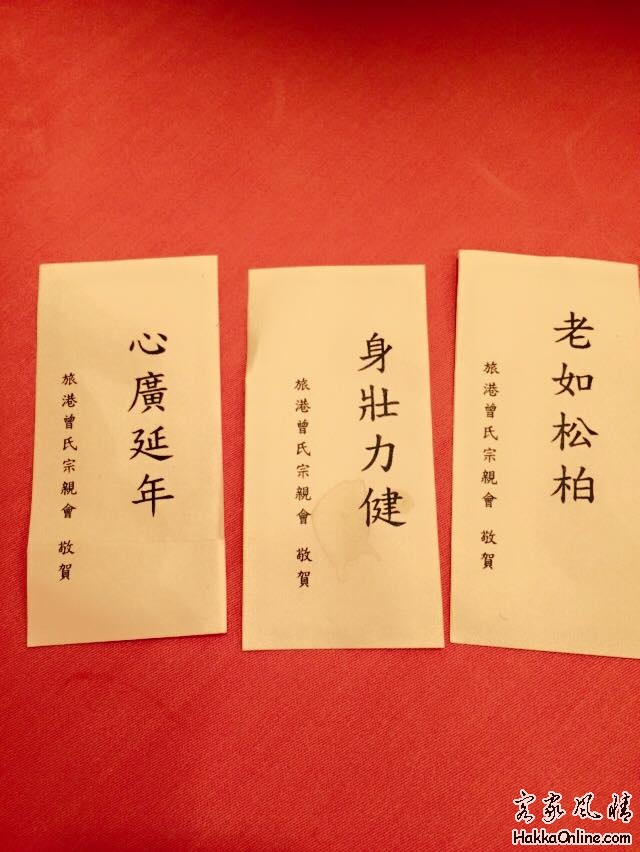 心廣延年
旅港曾氏宗親會 敬賀
身壯力健
旅港曾氏宗親會 敬賀
老如松柏
旅港曾氏宗親會 敬賀
客家風情
HakkaOnline.com